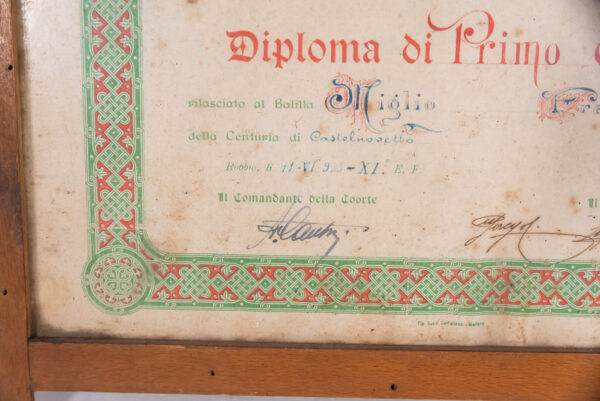 Diploma di Primo
rilasciato al Balilla Miglio
della Centuria di Castelnovetto
Robbio, li 11-VI-933-XI.° E. F.
Il Comandante della Coorte Il